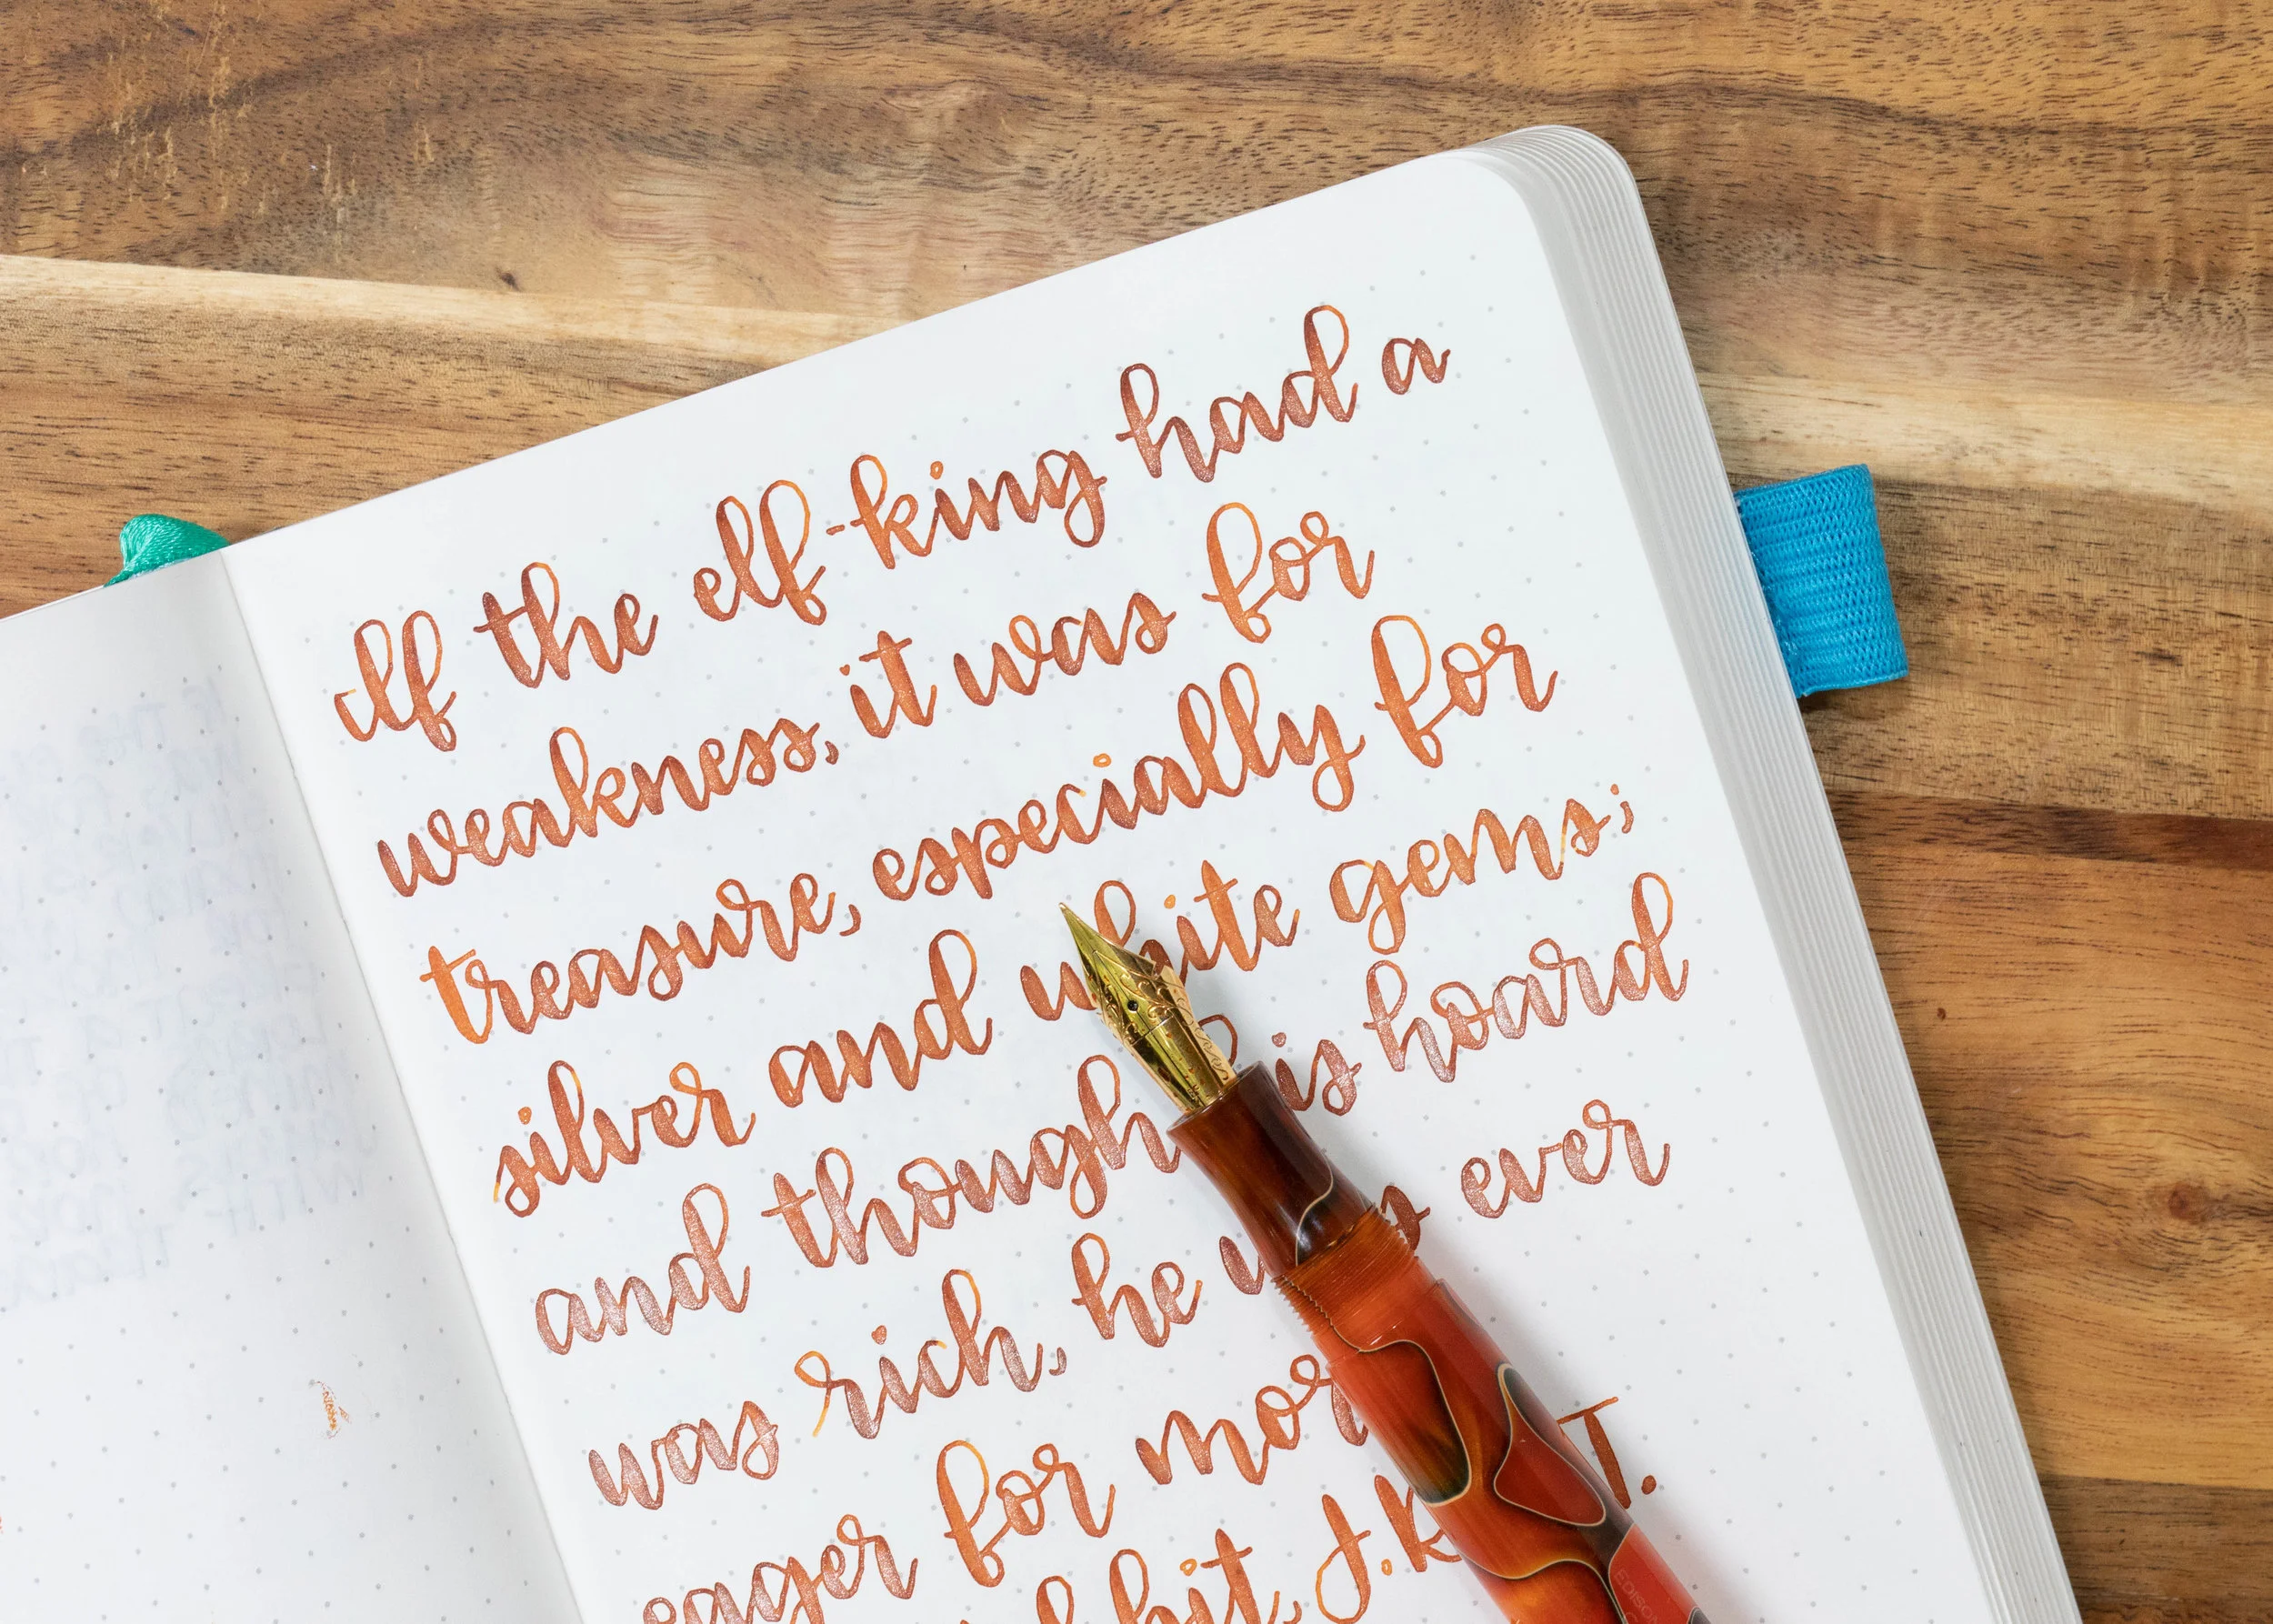 If the elf-king had a
weakness, it was for
treasure, especially for
silver and white gems;
and though his hoard
was rich, he was ever
eager for more
J.R. T.
EDISON